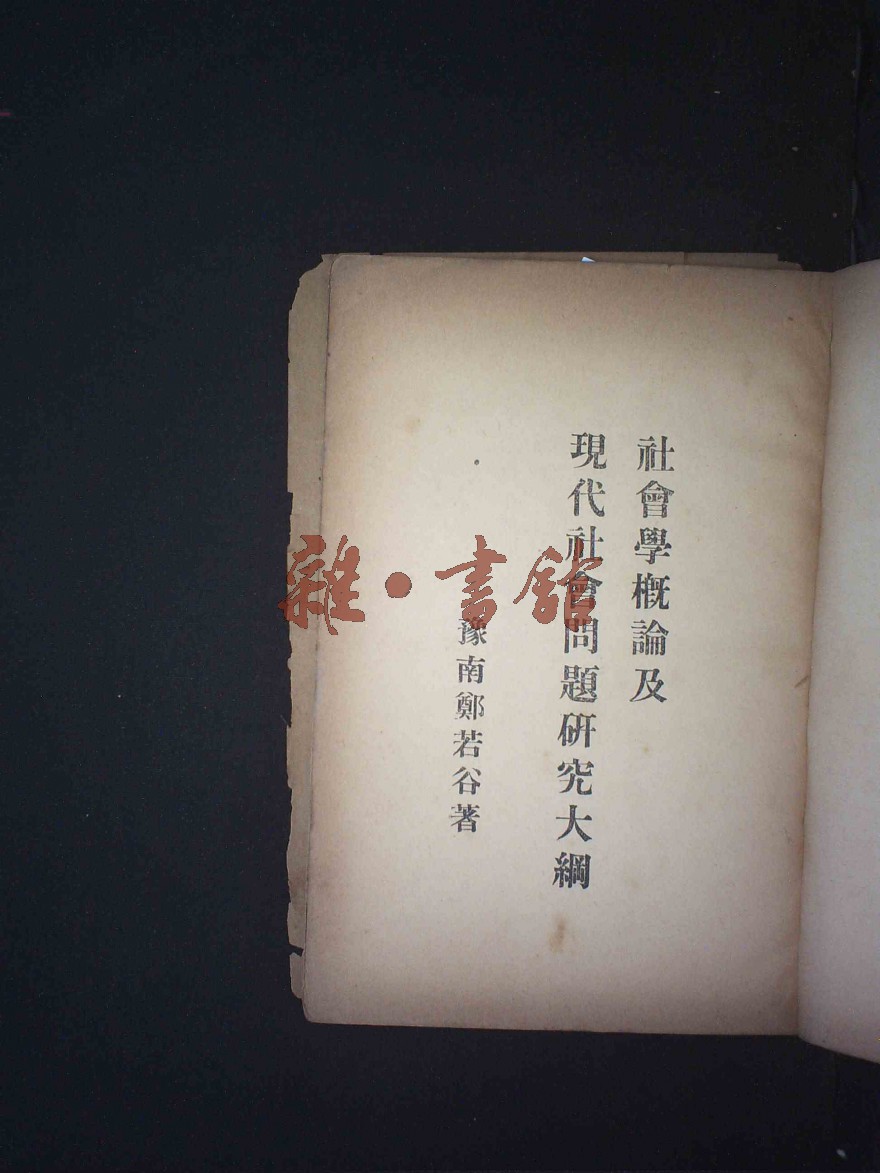 社會學概論及
現代社會問題研究大綱
豫南鄭若谷著
雜•書館